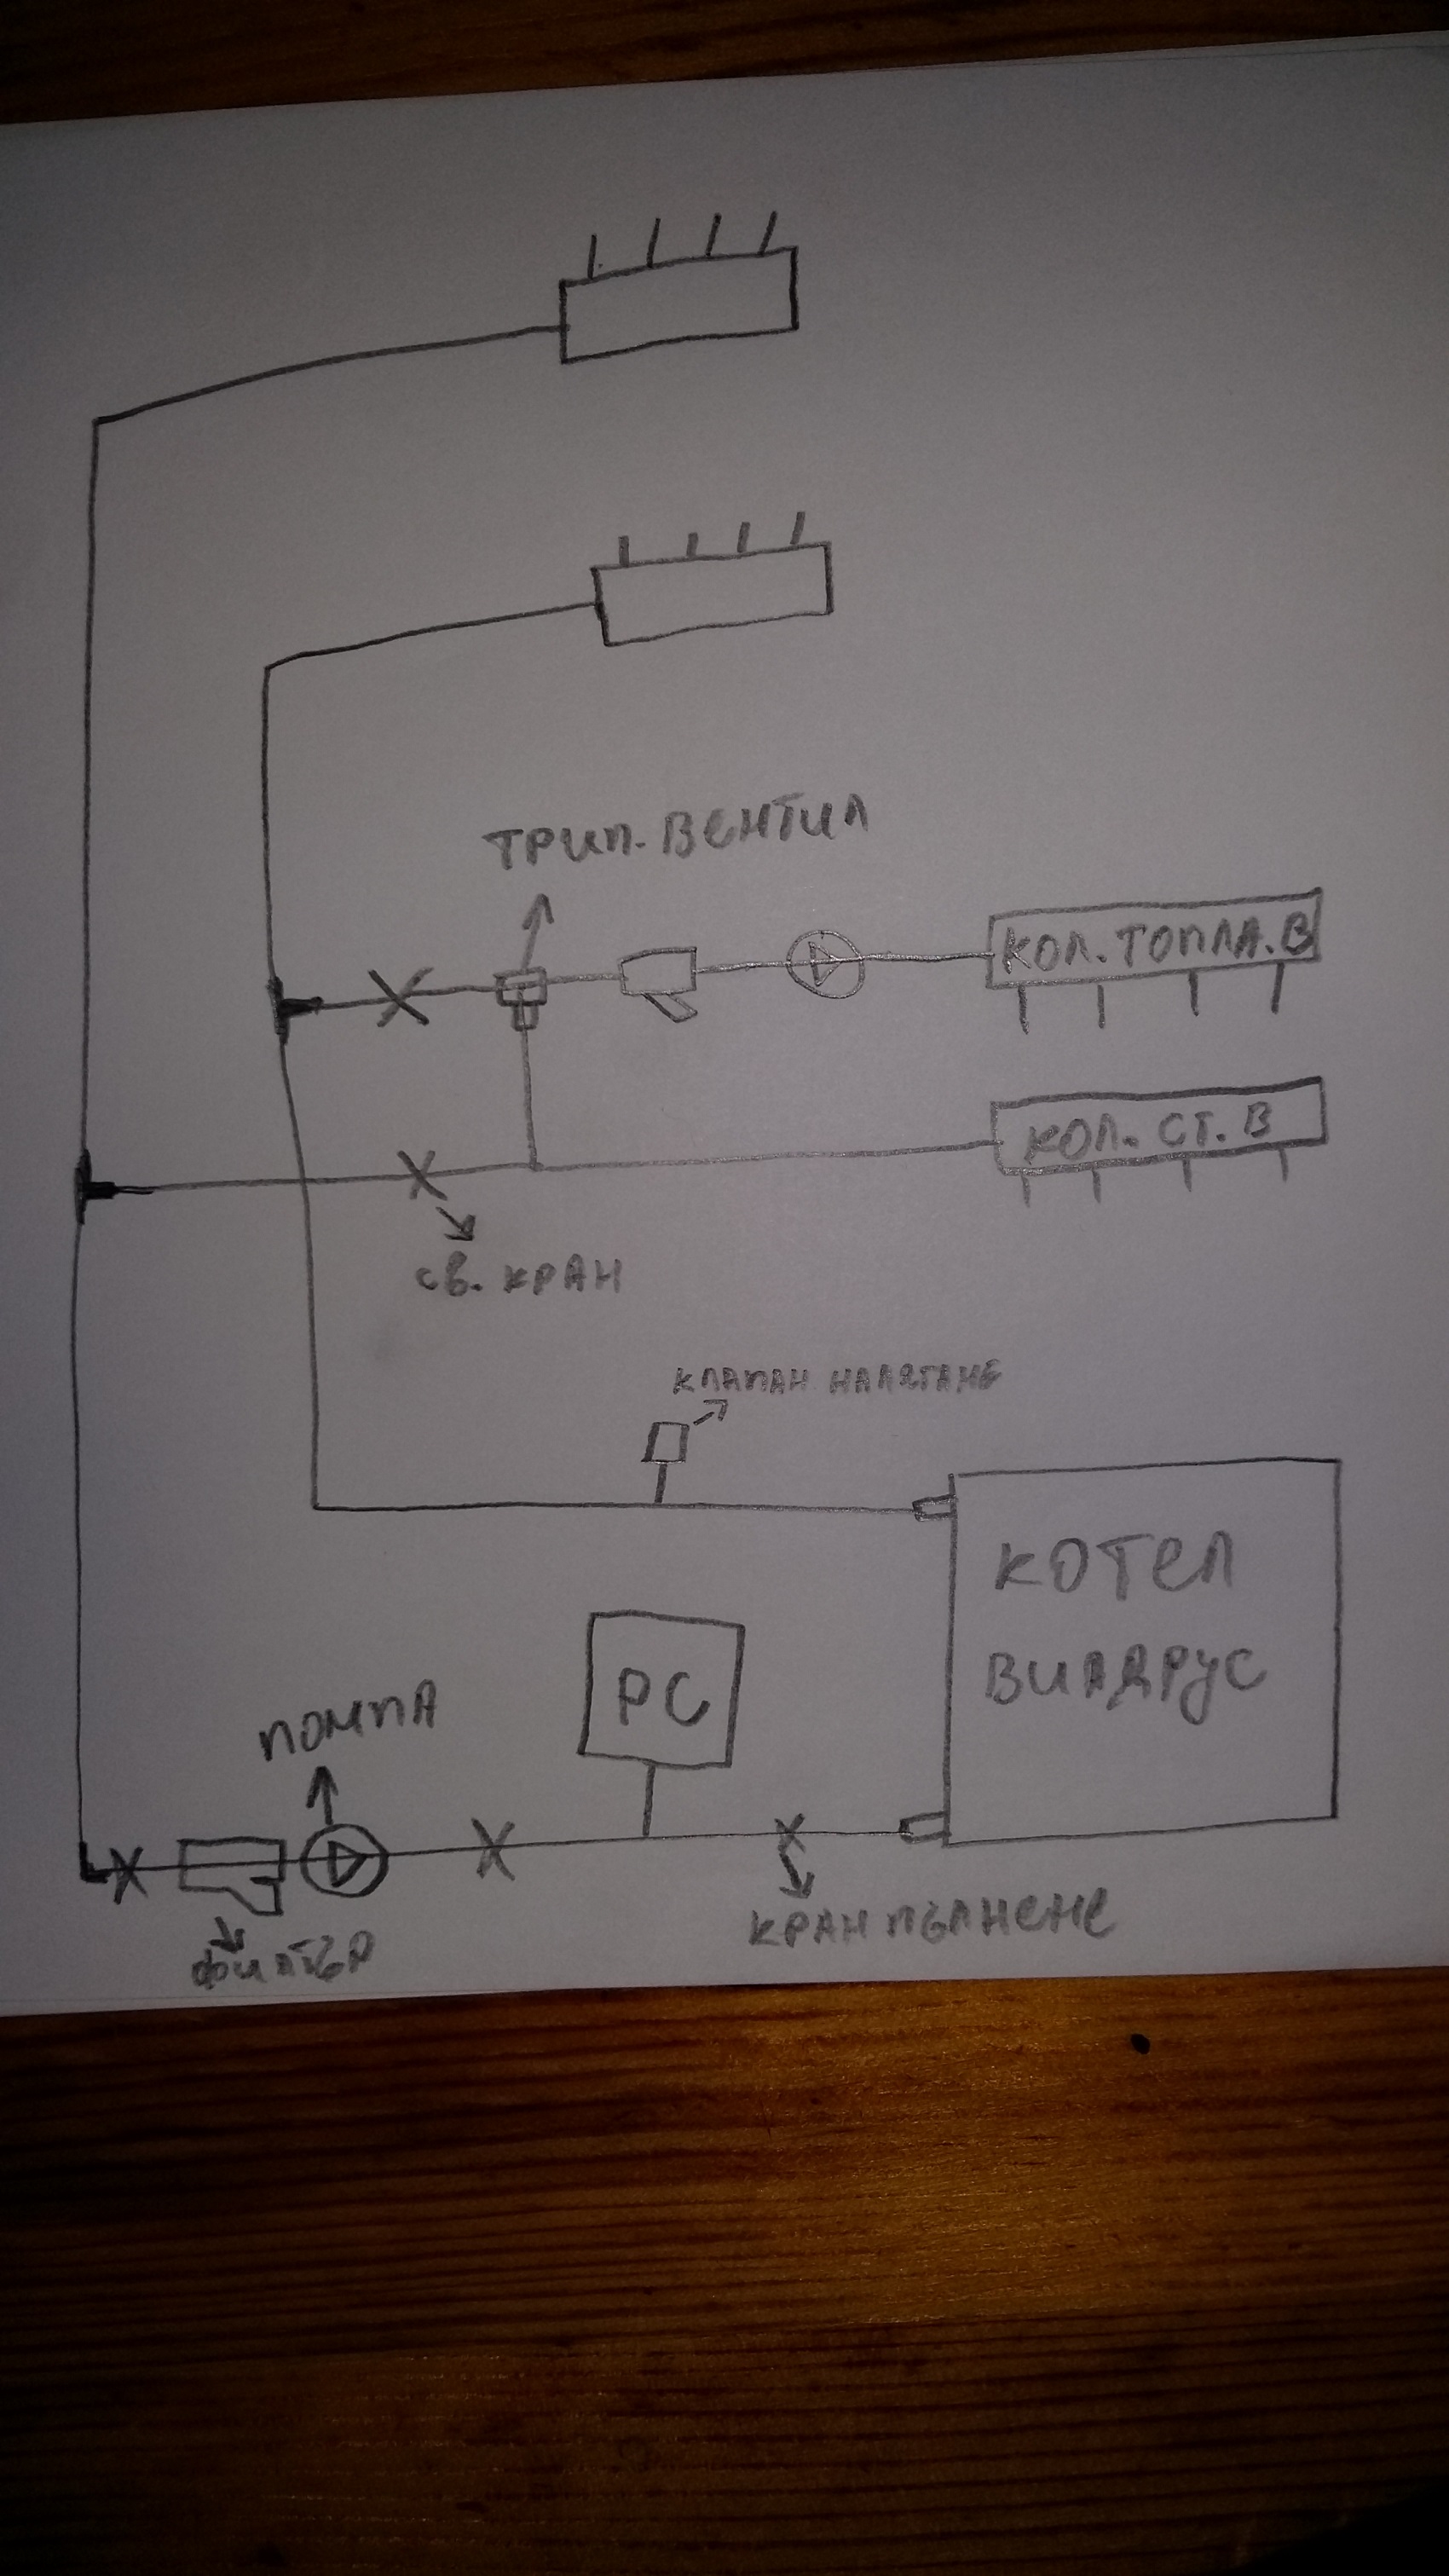 ТРИП. ВЕНТИЛ
КОЛ. ТОПЛА. В
КОЛ. СТ. В
СВ. КРАН
КЛАПАН НАЛЯГАНЕ
КОТЕЛ
ВИАДРУС
РС
ПОМПА
КРАН ПЪЛНЕНЕ
ФИЛТЪР